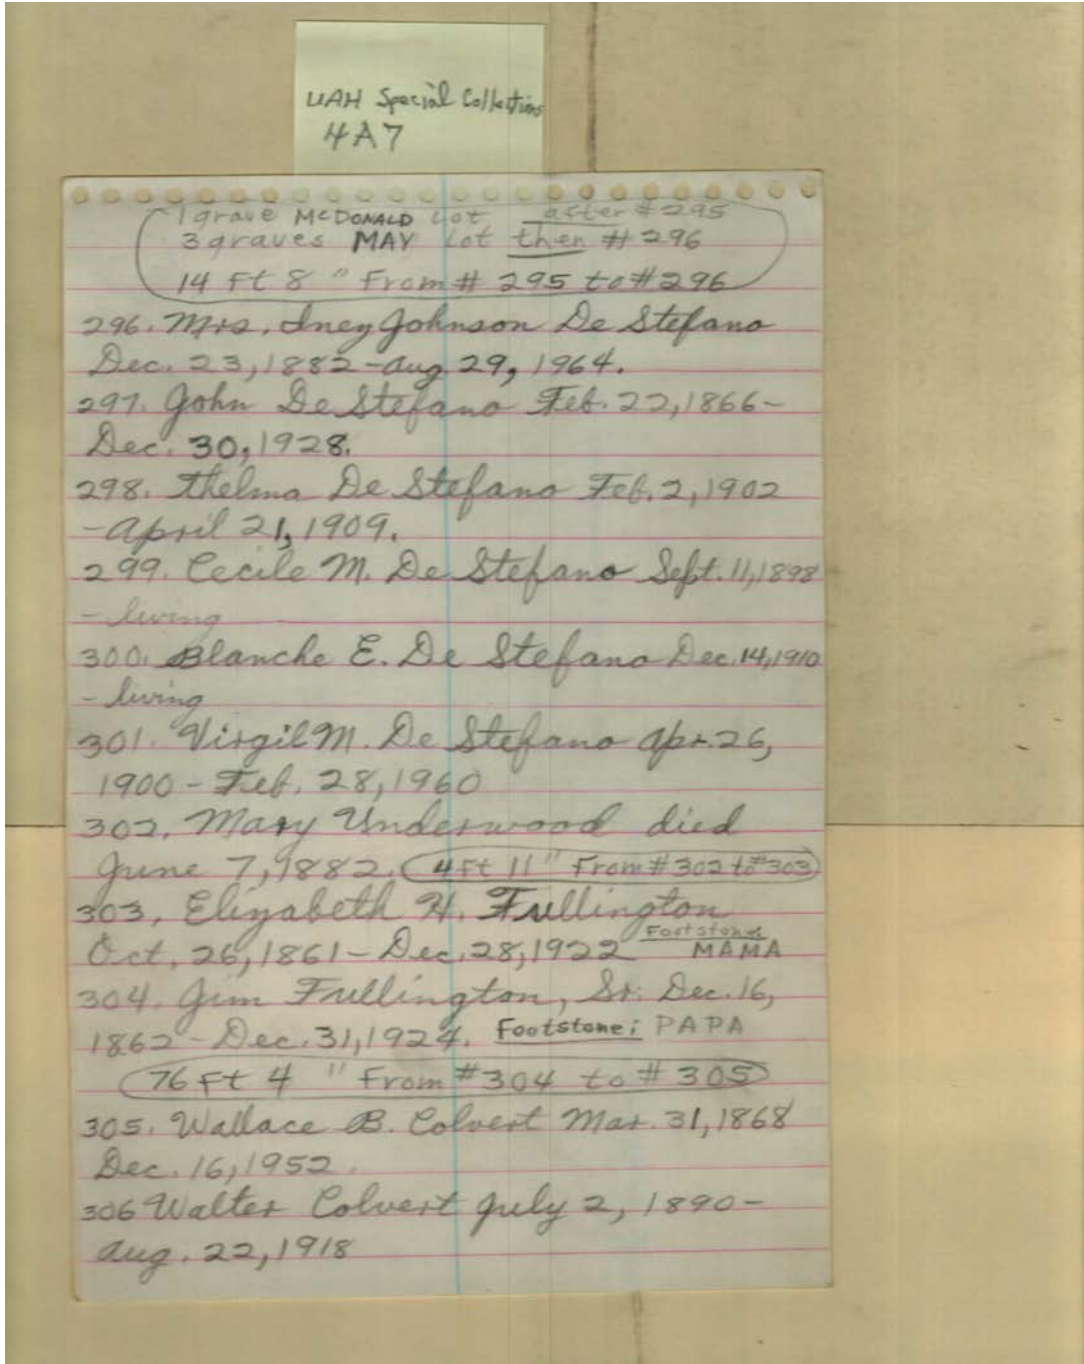 UAH Special Collections
4A7
1 grave McDONALD Lot after # 295
3 graves MAY Lot then # 296
14 Ft 8 " From # 295 to # 296
296. Mrs. Iney Johnson De Stefano
Dec. 23, 1882 - Aug. 29, 1964.
297. John De Stefano Feb. 22, 1866 -
Dec. 30, 1928.
298. Thelma De Stefano Feb. 2, 1902
- April 21, 1909.
299. Cecile M. De Stefano Sept. 11, 1898
- living
300. Blanche E. De Stefano Dec. 14, 1910
- living
301. Virgil M. De Stefano Apr. 26,
1900 - Feb. 28, 1960
302. Mary Underwood died
June 7, 1882. 4 Ft 11 " From # 302 to # 303
303. Elizabeth H. Fullington
Oct. 26, 1861 - Dec. 28, 1922 Footstone: MAMA
304. Jim Fullington, Sr. Dec. 16,
1862 - Dec. 31, 1924. Footstone: PAPA
76 Ft 4 " From # 304 to # 305
305. Wallace B. Colvert Mar. 31, 1868
Dec. 16, 1952.
306 Walter Colvert July 2, 1890 -
Aug. 22, 1918